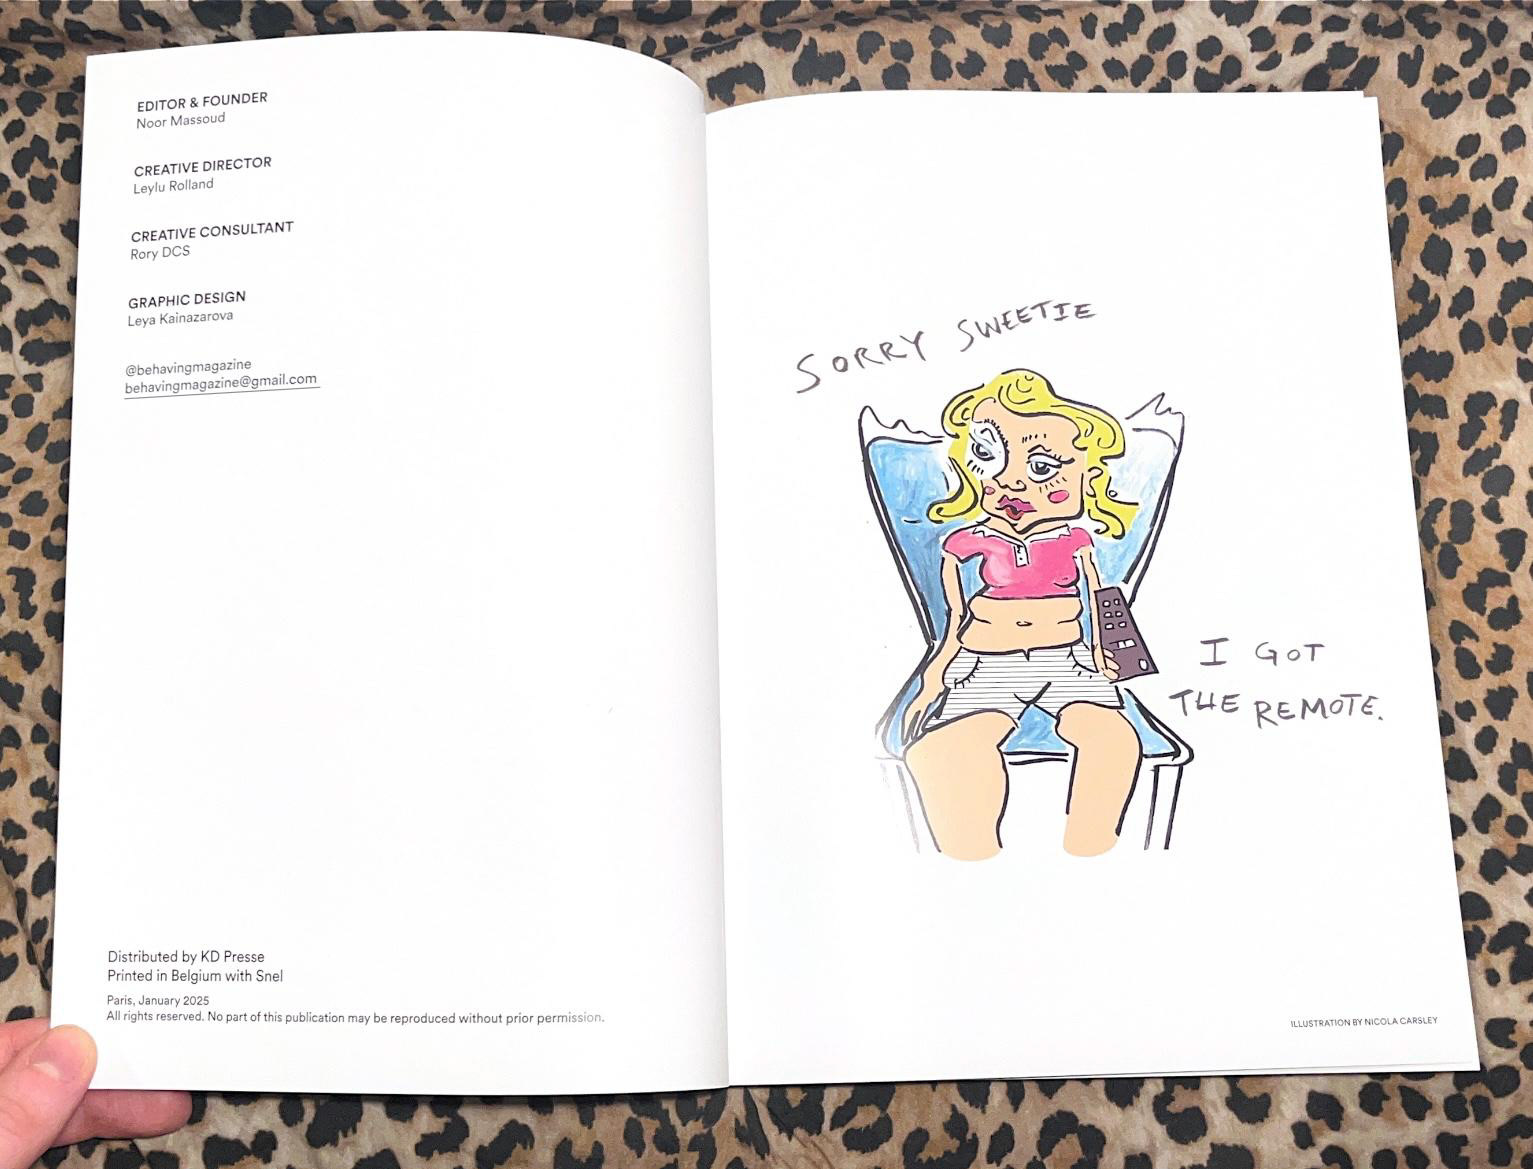 EDITOR & FOUNDER
Noor Massoud
CREATIVE DIRECTOR
Leylu Rolland
CREATIVE CONSULTANT
Rory DCS
GRAPHIC DESIGN
Leya Kainazarova
@behavingmagazine
behavingmagazine@gmail.com
Distributed by KD Presse
Printed in Belgium with Snel
Paris, January 2025
All rights reserved. No part of this publication may be reproduced without prior permission.
SORRY SWEETIE
I GOT
THE REMOTE.
ILLUSTRATION BY NICOLA CARSLEY